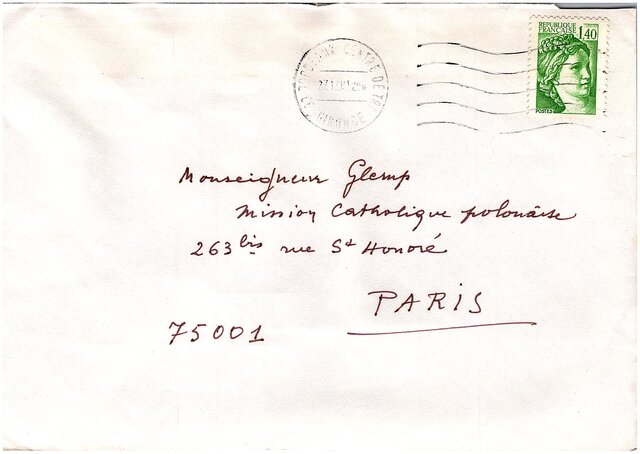 REPUBLIQUE
FRANÇAISE
1,40
POSTES
CENTRE DE TRI
GIRONDE
Monseigneur Glemp
Mission Catholique polonaise
263 bis rue St Honoré
PARIS
75001